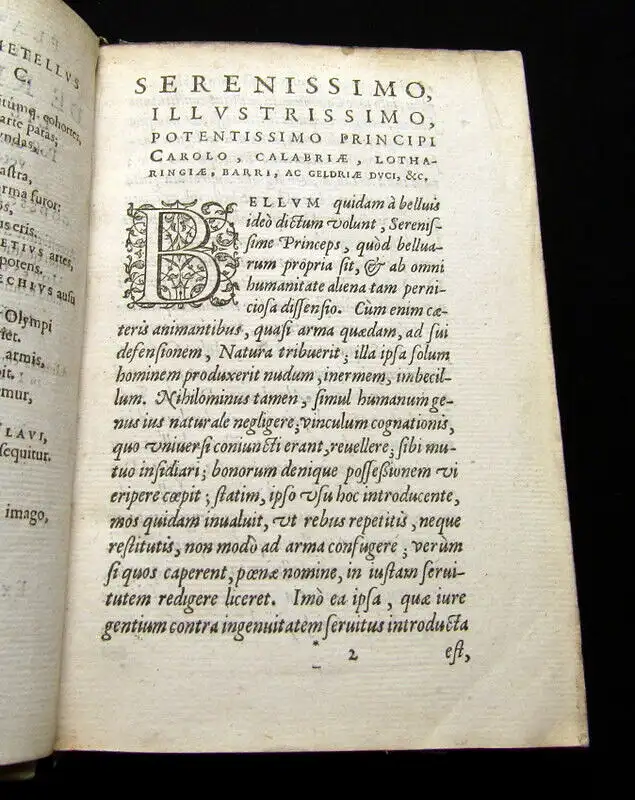 METELLVS
C.
cohortes,
arte paras;
astra,
rma furor:
us eris.
ETIVS artes,
potens.
ECHIVS ausu
Olympi
armis,
mur,
LAVI,
sequitur.
imago,
SERENISSIMO,
ILLVSTRISSIMO,
POTENTISSIMO PRINCIPI
CAROLO, CALABRIÆ, LOTHA-
RINGIÆ, BARRI, AC GELDRIÆ DVCI, &c.
BELLVM quidam à belluis
ideò dictum volunt, Sereniſ-
ſime Princeps, quòd bellua-
rum propria ſit, & ab omni
humanitate aliena tam perni-
cioſa diſſenſio. Cùm enim cæ-
teris animantibus, quaſi arma quædam, ad ſui
defenſionem, Natura tribuerit; illa ipſa ſolum
hominem produxerit nudum, inermem, imbecil-
lum. Nihilominus tamen, ſimul humanum ge-
nus ius naturale negligere; vinculum cognationis,
quo vniuerſi coniuncti erant, reuellere; ſibi mu-
tuo inſidiari; bonorum denique poſſeßionem vi
eripere cœpit; ſtatim, ipſo vſu hoc introducente,
mos quidam inualuit, vt rebus repetitis, neque
reſtitutis, non modò ad arma confugere; verùm
ſi quos caperent, pœnæ nomine, in iuſtam ſerui-
tutem redigere liceret. Imò ea ipſa, quæ iure
gentium contra ingenuitatem ſeruitus introducta
* 2 eſt,